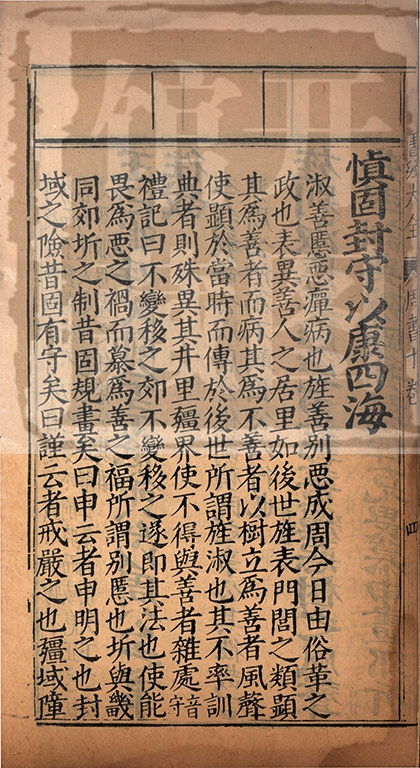 慎固封守以康四海
淑善慝惡癉病也旌善別惡成周今日由俗革之
政也表異善人之居里如後世旌表門閭之類顯
其為善者而病其為不善者以樹立為善者風聲
使顯於當時而傳於後世所謂旌淑也其不率訓
典者則殊異其井里疆界使不得與善者雜處音守
禮記曰不變移之郊不變移之遂即其法也使能
畏為惡之禍而慕為善之福所謂別慝也圻與畿
同郊圻之制昔固規畫矣曰申云者申明之也封
域之險昔固有守矣曰謹云者戒嚴之也疆域障
四